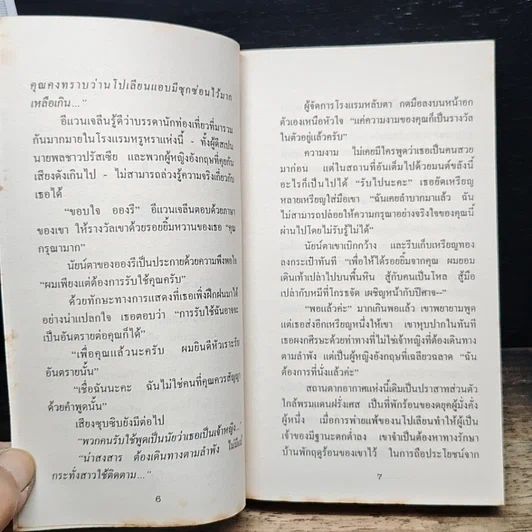 คุณคงทราบว่านโปเลียนแอบมีซุกซ่อนไว้มาก
เหลือเกิน..."
อีแวนเจลีนรู้ดีว่าบรรดานักท่องเที่ยวที่มารวม
กันมากมายในโรงแรมหรูหราแห่งนี้ - ทั้งผู้ดีสเปน
นายพลชาวปรัสเซีย และพวกผู้หญิงอังกฤษที่คุยกัน
เสียงดังเกินไป - ไม่สามารถล่วงรู้ความจริงเกี่ยวกับ
เธอได้
"ขอบใจ อองรี" อีแวนเจลีนตอบด้วยภาษา
ของเขา ให้รางวัลเขาด้วยรอยยิ้มหวานของเธอ "คุณ
กรุณามาก"
นัยน์ตาของอองรีเป็นประกายด้วยความพึงพอใจ
"ผมเพียงแต่ต้องการรับใช้คุณครับ"
ด้วยทักษะทางการแสดงที่เธอเพิ่งฝึกฝนมาได้
อย่างน่าแปลกใจ เธอตอบว่า "การรับใช้ฉันอาจจะ
เป็นอันตรายต่อคุณก็ได้"
"เพื่อคุณแล้วนะครับ ผมยินดีหัวเราะรับ
อันตรายนั้น"
"เชื่อฉันนะคะ ฉันไม่ใช่คนที่คุณควรสัญญา
ด้วยคำพูดนั้น"
เสียงซุบซิบยังมีต่อไป
"พวกคนรับใช้พูดเป็นนัยว่าเธอเป็นเจ้าหญิง..."
"น่าสงสาร ต้องเดินทางตามลำพัง ไม่มีแม้
กระทั่งสาวใช้ติดตาม..."
6
ผู้จัดการโรงแรมหลับตา กดมือลงบนหน้าอก
ตัวเองเหนือหัวใจ "แค่ความงามของคุณก็เป็นรางวัล
ในตัวอยู่แล้วครับ"
ความงาม ไม่เคยมีใครพูดว่าเธอเป็นคนสวย
มาก่อน แต่ในสถานที่อันเต็มไปด้วยมนต์ขลังนี้
อะไรก็เป็นไปได้ "รับไปนะคะ" เธอยัดเหรียญ
หลายเหรียญใส่มือเขา "ฉันเคยลำบากมาแล้ว ฉัน
ไม่สามารถปล่อยให้ความกรุณาอย่างจริงใจของคุณนี้
ผ่านไปโดยไม่รับรู้ไม่ได้"
นัยน์ตาเขาเบิกกว้าง และรีบเก็บเหรียญทอง
ลงกระเป๋าทันที "เพื่อให้ได้รอยยิ้มจากคุณ ผมยอม
เดินเท้าเปล่าไปบนพื้นหิน สู้กับคนเป็นโหล สู้มือ
เปล่ากับหมีที่โกรธจัด เผชิญหน้ากับปีศาจ--"
"พอแล้วค่ะ" มากเกินพอแล้ว เขาพยายามพูด
แต่เธอส่งอีกเหรียญหนึ่งให้เขา เขาหุบปากในทันที
เธอผงกศีรษะด้วยท่าทางที่ไม่ใช่เจ้าหญิงที่ต้องเดินทาง
ตามลำพัง แต่เป็นผู้หญิงอังกฤษที่เฉลียวฉลาด "ฉัน
ต้องการที่นั่งแล้วค่ะ"
สถานตากอากาศแห่งนี้เดิมเป็นปราสาทส่วนตัว
ใกล้พรมแดนฝรั่งเศส เป็นที่พักร้อนของดยุคผู้มั่งคั่ง
ผู้หนึ่ง เมื่อการพ่ายแพ้ของนโปเลียนทำให้ผู้เป็น
เจ้าของมีฐานะตกต่ำลง เขาจำเป็นต้องหาทางรักษา
บ้านพักฤดูร้อนของเขาไว้ ในการถือประโยชน์จาก
7